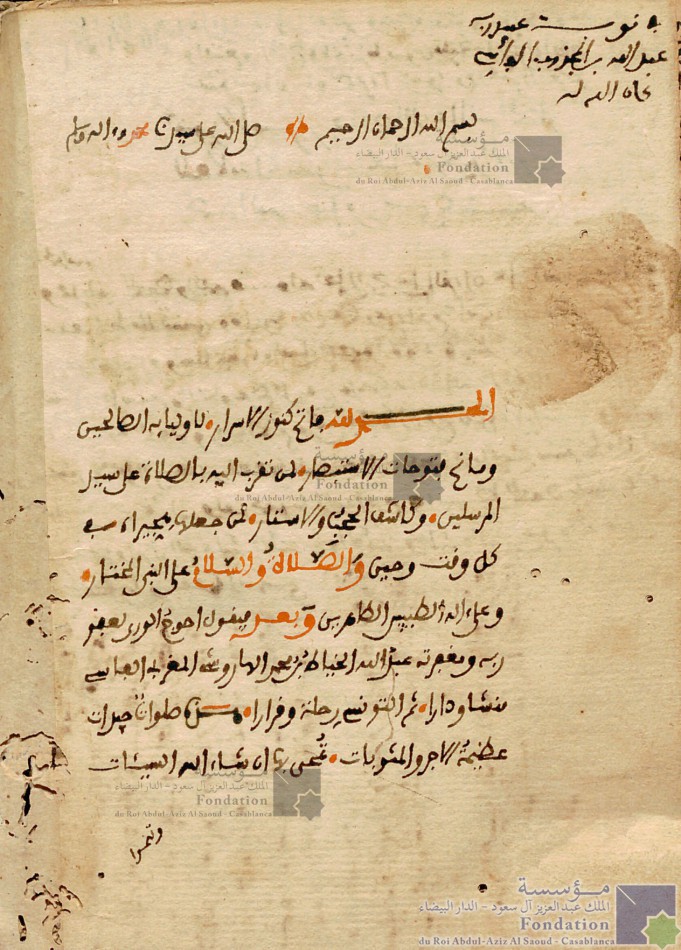 عبد الله بن المجذوب
غفر الله له
بسم الله الرحمان الرحيم صلى الله على سيدنا محمد وءاله وسلم
الحمد لله فاتح كنوز الاسرار لاوليايه الصالحين
ومانح فتوحات الاستبصار لمن تقرب اليه بالصلاة على سيد
المرسلين وكاشف الحجب والاستار لمن جعلها هجيراه في
كل وقت وحين والصلاة والسلام على النبي المختار
وعلى ءاله الطيبين الطاهرين وبعد فيقول احوج الورى لعفو
ربه ومغفرته عبد الله الخياط بن محمد الهاروشي المغربي الفاسي
منشا ودارا ثم التونسي رحلة وقرارا هذه صلوات جيدات
عظيمة الاجر والمثوبات تُمحى بها ان شاء الله السيئات
مؤسسة
الملك عبد العزيز آل سعود - الدار البيضاء
Fondation
du Roi Abdul-Aziz Al Saoud - Casablanca
مؤسسة
Fondation
du Roi Abdul-Aziz Al Saoud - Casablanca
مؤسسة
الملك عبد العزيز آل سعود - الدار البيضاء
Fondation
du Roi Abdul-Aziz Al Saoud - Casablanca
مؤسسة
الملك عبد العزيز آل سعود - الدار البيضاء
Fondation
du Roi Abdul-Aziz Al Saoud - Casablanca